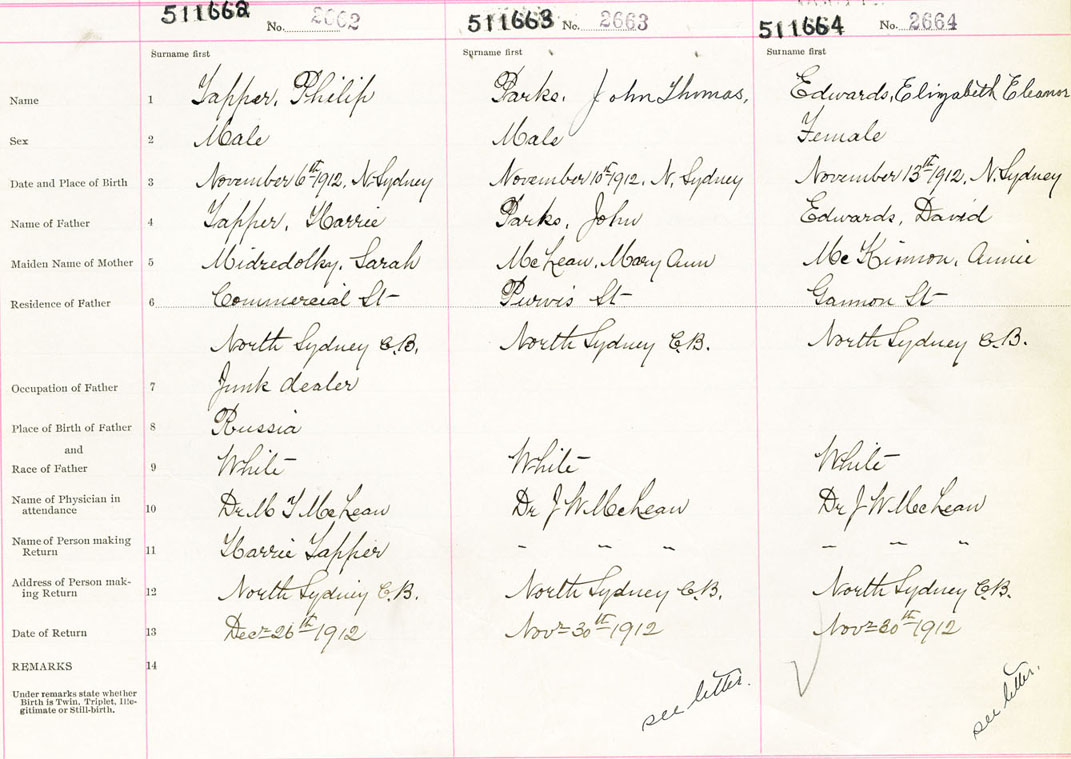 511662 No. 2662 511663 No. 2663 511664 No. 2664
Surname first Surname first Surname first
Name 1 Tapper, Philip Parks, John Thomas, Edwards, Elizabeth Eleanor
Sex 2 Male Male Female
Date and Place of Birth 3 November 6th 1912, N. Sydney November 10th 1912, N. Sydney November 13th 1912, N. Sydney
Name of Father 4 Tapper, Harrie Parks, John Edwards, David
Maiden Name of Mother 5 Midredolky, Sarah McLean, Mary Ann McKinnon, Annie
Residence of Father 6 Commercial St Purvis St Gannon St
North Sydney C.B. North Sydney C.B. North Sydney C.B.
Occupation of Father 7 Junk dealer
Place of Birth of Father 8 Russia
and
Race of Father 9 White White White
Name of Physician in
attendance 10 Dr M T McLean Dr J W McLean Dr J W McLean
Name of Person making
Return 11 Harrie Tapper " " " " " "
Address of Person mak-
ing Return 12 North Sydney C.B. North Sydney C.B. North Sydney C.B.
Date of Return 13 Decr 26th 1912 Novr 30th 1912 Novr 30th 1912
REMARKS 14
Under remarks state whether
Birth is Twin, Triplet, Ille-
gitimate or Still-birth.
see letter. see letter.